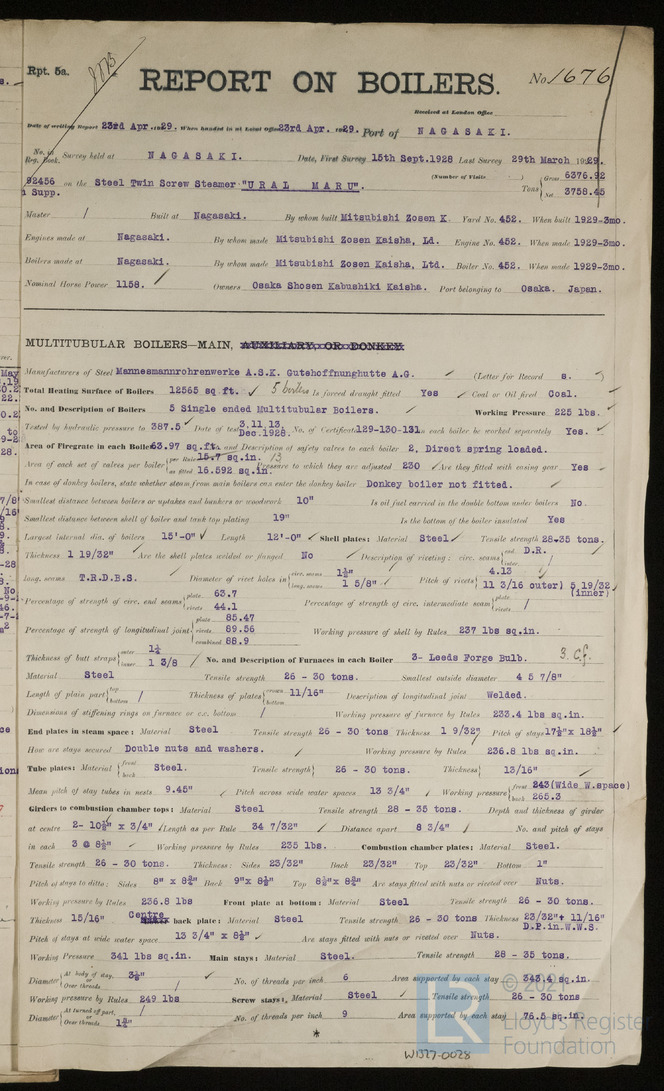 Rpt. 5a.
REPORT ON BOILERS.
No. 1676
Received at London Office
Date of writing Report 23rd Apr. 1929. When handed in at Local Office 23rd Apr. 1929. Port of NAGASAKI.
No. in Reg. Book. Survey held at NAGASAKI. Date, First Survey 15th Sept.1928 Last Survey 29th March 1929.
(Number of Visits
92456 on the Steel Twin Screw Steamer "URAL MARU". Tons Gross 6376.92
Supp. Net 3758.45
Master / Built at Nagasaki. By whom built Mitsubishi Zosen K. Yard No. 452. When built 1929-3mo.
Engines made at Nagasaki. By whom made Mitsubishi Zosen Kaisha, Ld. Engine No. 452. When made 1929-3mo.
Boilers made at Nagasaki. By whom made Mitsubishi Zosen Kaisha, Ltd. Boiler No. 452. When made 1929-3mo.
Nominal Horse Power 1158. Owners Osaka Shosen Kabushiki Kaisha. Port belonging to Osaka. Japan.
MULTITUBULAR BOILERS—MAIN, AUXILIARY, OR DONKEY
Manufacturers of Steel Mannesmannrohrenwerke A.S.K. Gutehoffnunghutte A.G. (Letter for Record s. )
Total Heating Surface of Boilers 12565 sq.ft. 5 boilers Is forced draught fitted Yes Coal or Oil fired Coal.
No. and Description of Boilers 5 Single ended Multitubular Boilers. Working Pressure 225 lbs.
Tested by hydraulic pressure to 387.5 Date of test 3,11,13, Dec.1928. No. of Certificate 129-130-131 Can each boiler be worked separately Yes.
Area of Firegrate in each Boiler 63.97 sq.ft. No. and Description of safety valves to each boiler 2, Direct spring loaded.
Area of each set of valves per boiler per Rule 15.7 sq.in. 13
as fitted 16.592 sq.in. Pressure to which they are adjusted 230 Are they fitted with easing gear Yes
In case of donkey boilers, state whether steam from main boilers can enter the donkey boiler Donkey boiler not fitted.
Smallest distance between boilers or uptakes and bunkers or woodwork 10" Is oil fuel carried in the double bottom under boilers No.
Smallest distance between shell of boiler and tank top plating 19" Is the bottom of the boiler insulated Yes
Largest internal dia. of boilers 15'-0" Length 12'-0" Shell plates: Material Steel Tensile strength 28-35 tons.
Thickness 1 19/32" Are the shell plates welded or flanged No Description of riveting: circ. seams end D.R.
inter /
long. seams T.R.D.B.S. Diameter of rivet holes in circ. seams 1½"
long. seams 1 5/8" Pitch of rivets 4.13
11 3/16 outer) 5 19/32 (inner)
Percentage of strength of circ. end seams plate 63.7
rivets 44.1 Percentage of strength of circ. intermediate seam plate
rivets /
Percentage of strength of longitudinal joint plate 85.47
rivets 89.56
combined 88.9 Working pressure of shell by Rules 237 lbs sq.in.
Thickness of butt straps outer 1¼
inner 1 3/8 No. and Description of Furnaces in each Boiler 3- Leeds Forge Bulb. 3. C.f.
Material Steel Tensile strength 26 - 30 tons. Smallest outside diameter 4 5 7/8"
Length of plain part top
bottom / Thickness of plates crown
bottom 11/16" Description of longitudinal joint Welded.
Dimensions of stiffening rings on furnace or c.c. bottom / Working pressure of furnace by Rules 233.4 lbs sq.in.
End plates in steam space: Material Steel Tensile strength 26 - 30 tons Thickness 1 9/32" Pitch of stays 17½"x 18½"
How are stays secured Double nuts and washers. Working pressure by Rules 236.8 lbs sq.in.
Tube plates: Material front
back Steel. Tensile strength 26 - 30 tons. Thickness 13/16"
Mean pitch of stay tubes in nests 9.45" Pitch across wide water spaces 13 3/4" Working pressure front 243(Wide W.space)
back 265.3
Girders to combustion chamber tops: Material Steel Tensile strength 28 - 35 tons. Depth and thickness of girder
at centre 2- 10⅜" x 3/4" Length as per Rule 34 7/32" Distance apart 8 3/4" No. and pitch of stays
in each 3 @ 8½" Working pressure by Rules 235 lbs. Combustion chamber plates: Material Steel.
Tensile strength 26 - 30 tons. Thickness: Sides 23/32" Back 23/32" Top 23/32" Bottom 1"
Pitch of stays to ditto: Sides 8" x 8¾" Back 9"x 8½" Top 8½"x 8¾" Are stays fitted with nuts or riveted over Nuts.
Working pressure by Rules 236.8 lb Front plate at bottom: Material Steel Tensile strength 26 - 30 tons.
Thickness 15/16" Centre back plate: Material Steel Tensile strength 26 - 30 tons Thickness 23/32"+ 11/16" D.P.in.W.W.S.
Pitch of stays at wide water space 13 3/4" x 8½" Are stays fitted with nuts or riveted over Nuts.
Working Pressure 341 lbs sq.in. Main stays: Material Steel. Tensile strength 28 - 35 tons.
Diameter At body of stay, 3⅛"
or
Over threads / No. of threads per inch 6 Area supported by each stay 343.4 sq.in.
Working pressure by Rules 249 lbs Screw stays: Material Steel Tensile strength 26 - 30 tons
Diameter At turned off part, /
or
Over threads 1¾" No. of threads per inch 9 Area supported by each stay 76.5 sq.in.
*
W1327-0028
© 2021
LR
Lloyd's Register
Foundation